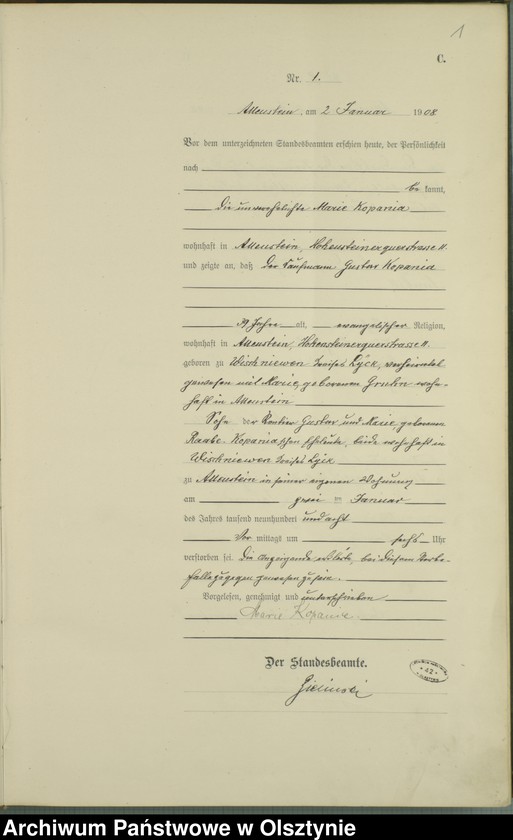 1
C.
Nr. 1.
Allenstein, am 2 Januar 1908
Vor dem unterzeichneten Standesbeamten erschien heute, der Persönlichkeit
nach
be kannt,
die unverehelichte Marie Kopania
wohnhaft in Allenstein, Hohensteinerquerstrasse 11.
und zeigte an, daß der Kaufmann Gustav Kopania
39 Jahre alt, evangelischer Religion,
wohnhaft in Allenstein, Hohensteinerquerstrasse 11.
geboren zu Wischniewen Kreises Lyck, verheiratet
gewesen mit Marie, geborenen Gruhn wohn-
haft in Allenstein
Sohn der Rentier Gustav und Marie, geborenen
Raabe-Kopania'schen Eheleute, beide wohnhaft in
Wischniewen Kreises Lyck
zu Allenstein in seiner eigenen Wohnung
am zwei ten Januar
des Jahres tausend neunhundert und acht
Vor mittags um sechs Uhr
verstorben sei. Die Anzeigende erklärte, bei diesem Sterbe-
falle zugegen gewesen zu sein.
Vorgelesen, genehmigt und unterschrieben
Marie Kopania
Der Standesbeamte.
Archiwum Państwowe w Olsztynie